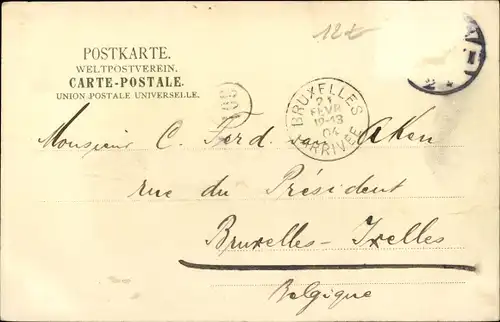 12
POSTKARTE.
WELTPOSTVEREIN.
CARTE-POSTALE.
UNION POSTALE UNIVERSELLE.
BRUXELLES
21
FEVR
12-13
04
ARRIVEE
Monsieur C. Ferd. van Aken
rue du Président
Bruxelles-Ixelles
Belgique